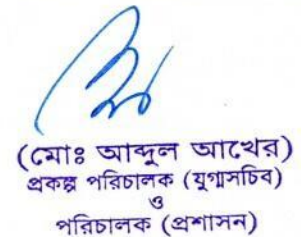 (মোঃ আব্দুল আখের)
প্রকল্প পরিচালক (যুগ্মসচিব)
ও
পরিচালক (প্রশাসন)